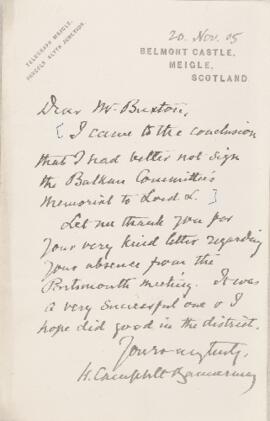 TELEGRAPH MEIGLE.
PARCELS ALYTH JUNCTION.
20. Nov. 05
BELMONT CASTLE,
MEIGLE,
SCOTLAND.
Dear Mr. Buxton,
[ I came to the conclusion
that I had better not sign
the Balkan Committee's
Memorial to Lord L. ]
Let me thank you for
your very kind letter regarding
your absence from the
Portsmouth meeting. It was
a very successful one & I
hope did good in the district.
Yours very truly,
H. Campbell Bannerman